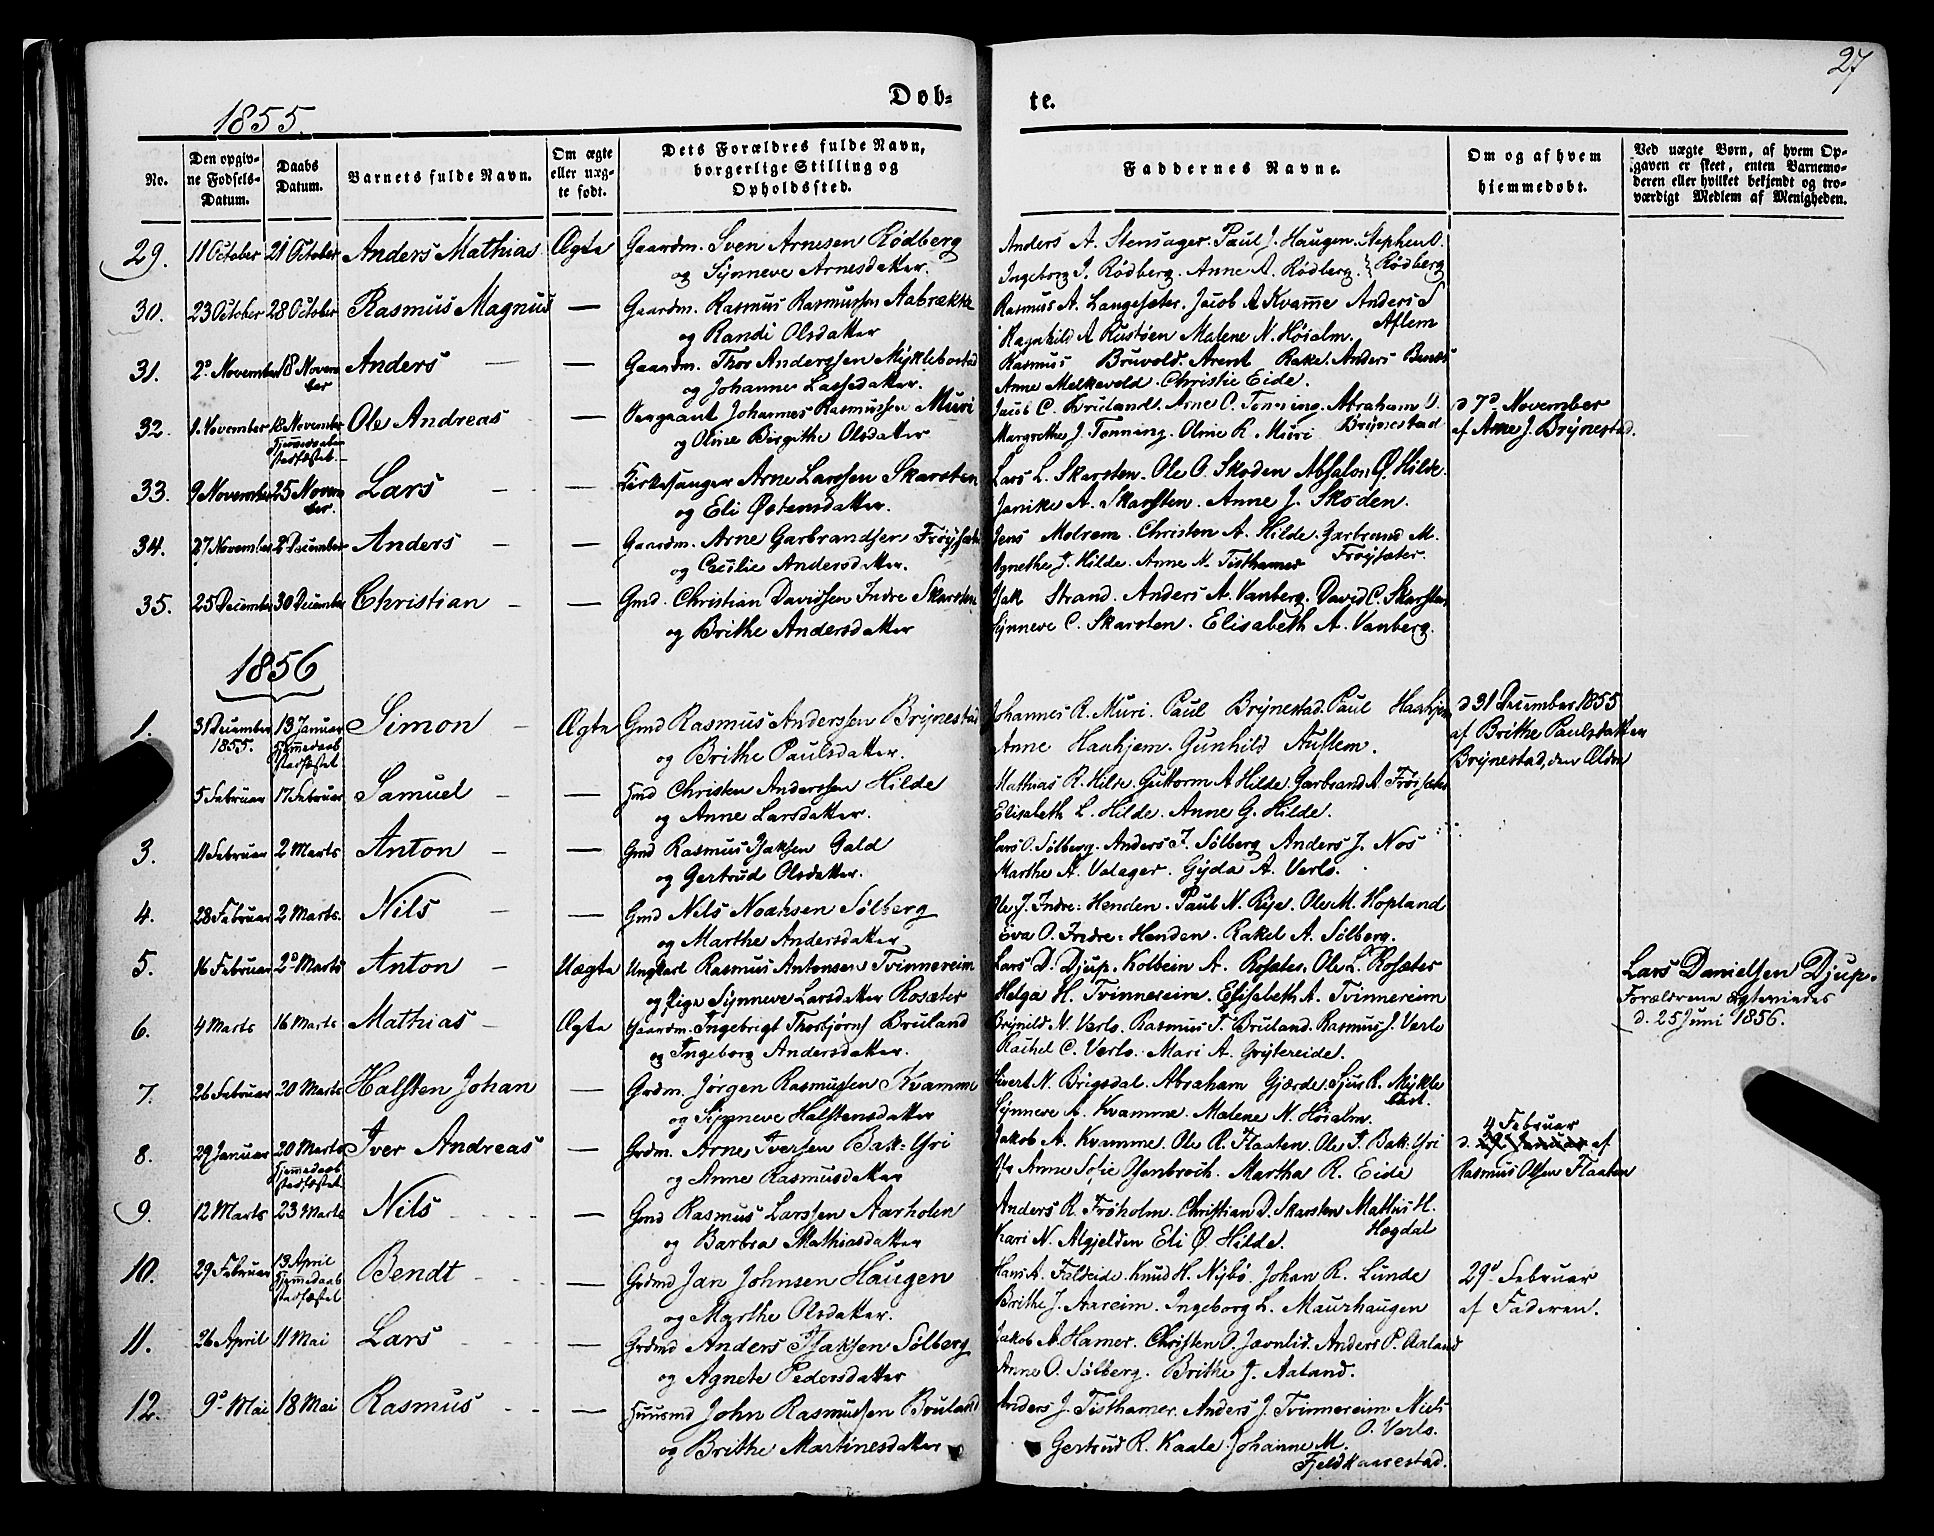 27
1855.
Døb-
te.
No.
Den opgiv-
ne Fødsels-
Datum.
Daabs
Datum.
Barnets fulde Navn.
Om ægte
eller uæg-
te født.
Dets Forældres fulde Navn,
borgerlige Stilling og
Opholdssted.
Faddernes Navne.
Om og af hvem
hjemmedøbt.
Ved uægte Børn, af hvem Op-
gaven er skeet, enten Barnemo-
deren eller hvilket bekjendt og tro-
værdigt Medlem af Menigheden.
29. 11 October 21 October Anders Mathias Ægte Gaardm. Sven Arnesen Rødberg Anders A. Stensager. Paul J. Haugen. Stephen O.
og Synneve Arnesdatter. Ingeborg J. Rødberg. Anne A. Rødberg. Rødberg
30. 23 October 28 October Rasmus Magnus — Gaardm. Rasmus Rasmussen Aabrække Rasmus A. Langesæter. Jacob A Kvamme Anders S
og Randi Olsdatter Ragnhild A Rustøen Malene N. Høialm. Aflem
31. 2d November 18 Novem Anders — — Gaardm. Thor Anderssen Myklebostad Rasmus Bruvold. Arent Rake. Anders Benes
ber og Johanne Lassedatter. Anne Melkevold. Christie Eide.
32. 1. November 18 November Ole Andreas — Sergeant Johannes Rasmussen Muri Jacob C. Bruland. Arne O. Tonning. Abraham O. d 7d November
Hjemmedaab stadfæstet og Oline Birgithe Olsdatter Margrethe J. Tonning. Oline R. Muri Brynestad af Anne J. Brynestad.
33. 9 November 25 Novem Lars — — Kirkesanger Arne Larssen Skarsten Lars L. Skarsten. Ole O. Skoden Absalon Ø. Hilde.
ber. og Eli Østensdatter. Janike A. Skarsten. Anne J. Skoden.
34. 27 November 2 December Anders — — Gaardm. Arne Garbrandsen Frøysæter Jens Molrem. Christen A. Hilde. Garbrand M.
og Cecilie Andersdatter. Agnethe J. Hilde. Anne N. Tisthamer Frøysæter.
35. 25 December 30 December Christian — — Gmd. Christian Davidsen Indre Skarsten Isak Strand. Anders A. Vanberg. David C. Skarsten
og Brithe Andersdatter Synneve C. Skarsten. Elisabeth A. Vanberg.
1856
1. 31 December 13 Januar Simon — Ægte Gmd Rasmus Anderssen Brynestad Johannes R. Muri. Paul Brynestad. Paul Haahjem d 31 December 1855
1855. Hjemmedaab stadfæstet og Brithe Paulsdatter. Anne Haahjem. Gunhild Auflem. af Brithe Paulsdatter
Brynestad, den Ældre
5 Februar 17 Februar Samuel — — Gmd Christen Anderssen Hilde Mathias R. Hilde Guttorm A Hilde. Garbrand A. Frøisæter
og Anne Larsdatter. Elisabeth L. Hilde. Anne G. Hilde.
3. 11 Februar 2 Marts Anton — — Gmd Rasmus Isaksen Gald Lars O. Sølberg. Anders I. Sølberg Anders J. Nos
og Gertrud Olsdatter. Marthe A. Valager. Gyda A. Verlo.
4. 28 Februar 2 Marts. Nils — — Gmd Nils Noahsen Sølberg Ole J. Indre-Henden. Paul N. Rise. Ole M. Hopland
og Marthe Andersdatter Eva O. Indre-Henden. Rakel A. Sølberg.
5. 16 Februar 2d Marts Anton — Uægte Ungkarl Rasmus Antonsen Tvinnereim Lars D. Djup. Kolbein A. Rosæter. Ole L. Rosæter Lars Danielsen Djup.
og Pige Synneve Larsdatter Rosæter Helga H. Tvinnereim. Elisabeth A. Tvinnereim Forældrene ægteviedes
d. 25 Juni 1856.
6. 4 Marts 16 Marts Mathias — Ægte Gaardm. Ingebrigt Thorbjørns Bruland Brynild N. Verlo. Rasmus T. Bruland. Rasmus J. Verlo
og Ingeborg Andersdatter. Rachel C. Verlo. Mari A. Grytereide.
7. 26 Februar 20 Marts Halsten Johan — Grdm. Jørgen Rasmussen Kvamme Sivert N. Brigsdal. Abraham Gjærde. Sjur R. Mykle
og Synneve Halstensdatter Synneve A. Kvamme. Malene N. Høialm. bust.
8. 29 Januar 20 Marts Iver Andreas — Grdm. Arne Iversen Bak-Yri Jakob A. Kvamme. Ole R. Flaaten. Ole I. Bak-Yri 4 Februar
d. 29 Januar af
Hjemmedaab stadfæstet og Anne Rasmusdatter Jfr Anne Sofie Ysenbroch. Martha R. Eide Rasmus Olsen Flaaten
9. 12 Marts 23 Marts Nils — Gmd Rasmus Larssen Aarholen Anders R. Frøholm. Christian D. Skarsten Mathis H.
og Barbra Mathiasdatter Kari N. Mgjelden Eli Ø. Hilde. Hogdal
10. 29 Februar 13 April Bendt — Grdmd Jan Johnsen Haugen Hans A. Faleide. Knud H. Nybø. Johan R. Lunde 29d Februar
Hjemmedaab stadfæstet og Marthe Olsdatter. Brithe J. Aareim. Ingeborg L. Maurhaugen af Faderen.
11. 26 April 11 Mai Lars — Grdmd Anders Isaksen Sølberg Jakob A. Hamer. Christen O. Jævnlid. Anders P. Aaland
og Agnete Pedersdatter Anne O. Sølberg. Brithe J. Aaland.
12. 9d Mai 18 Mai Rasmus — Huusmd John Rasmussen Bruland Anders J. Tisthamer. Anders J. Tvinnereim. Niels
og Brithe Martinesdatter Gertrud R. Kaale. Johanne M. O. Verlo.
Fjeldkaarestad.